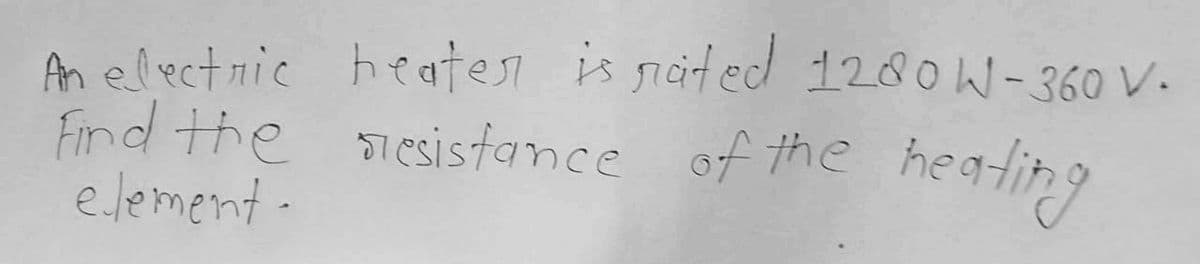 An electric heater is rated 1280W-360 V.
Find the resistance of the heating
element.